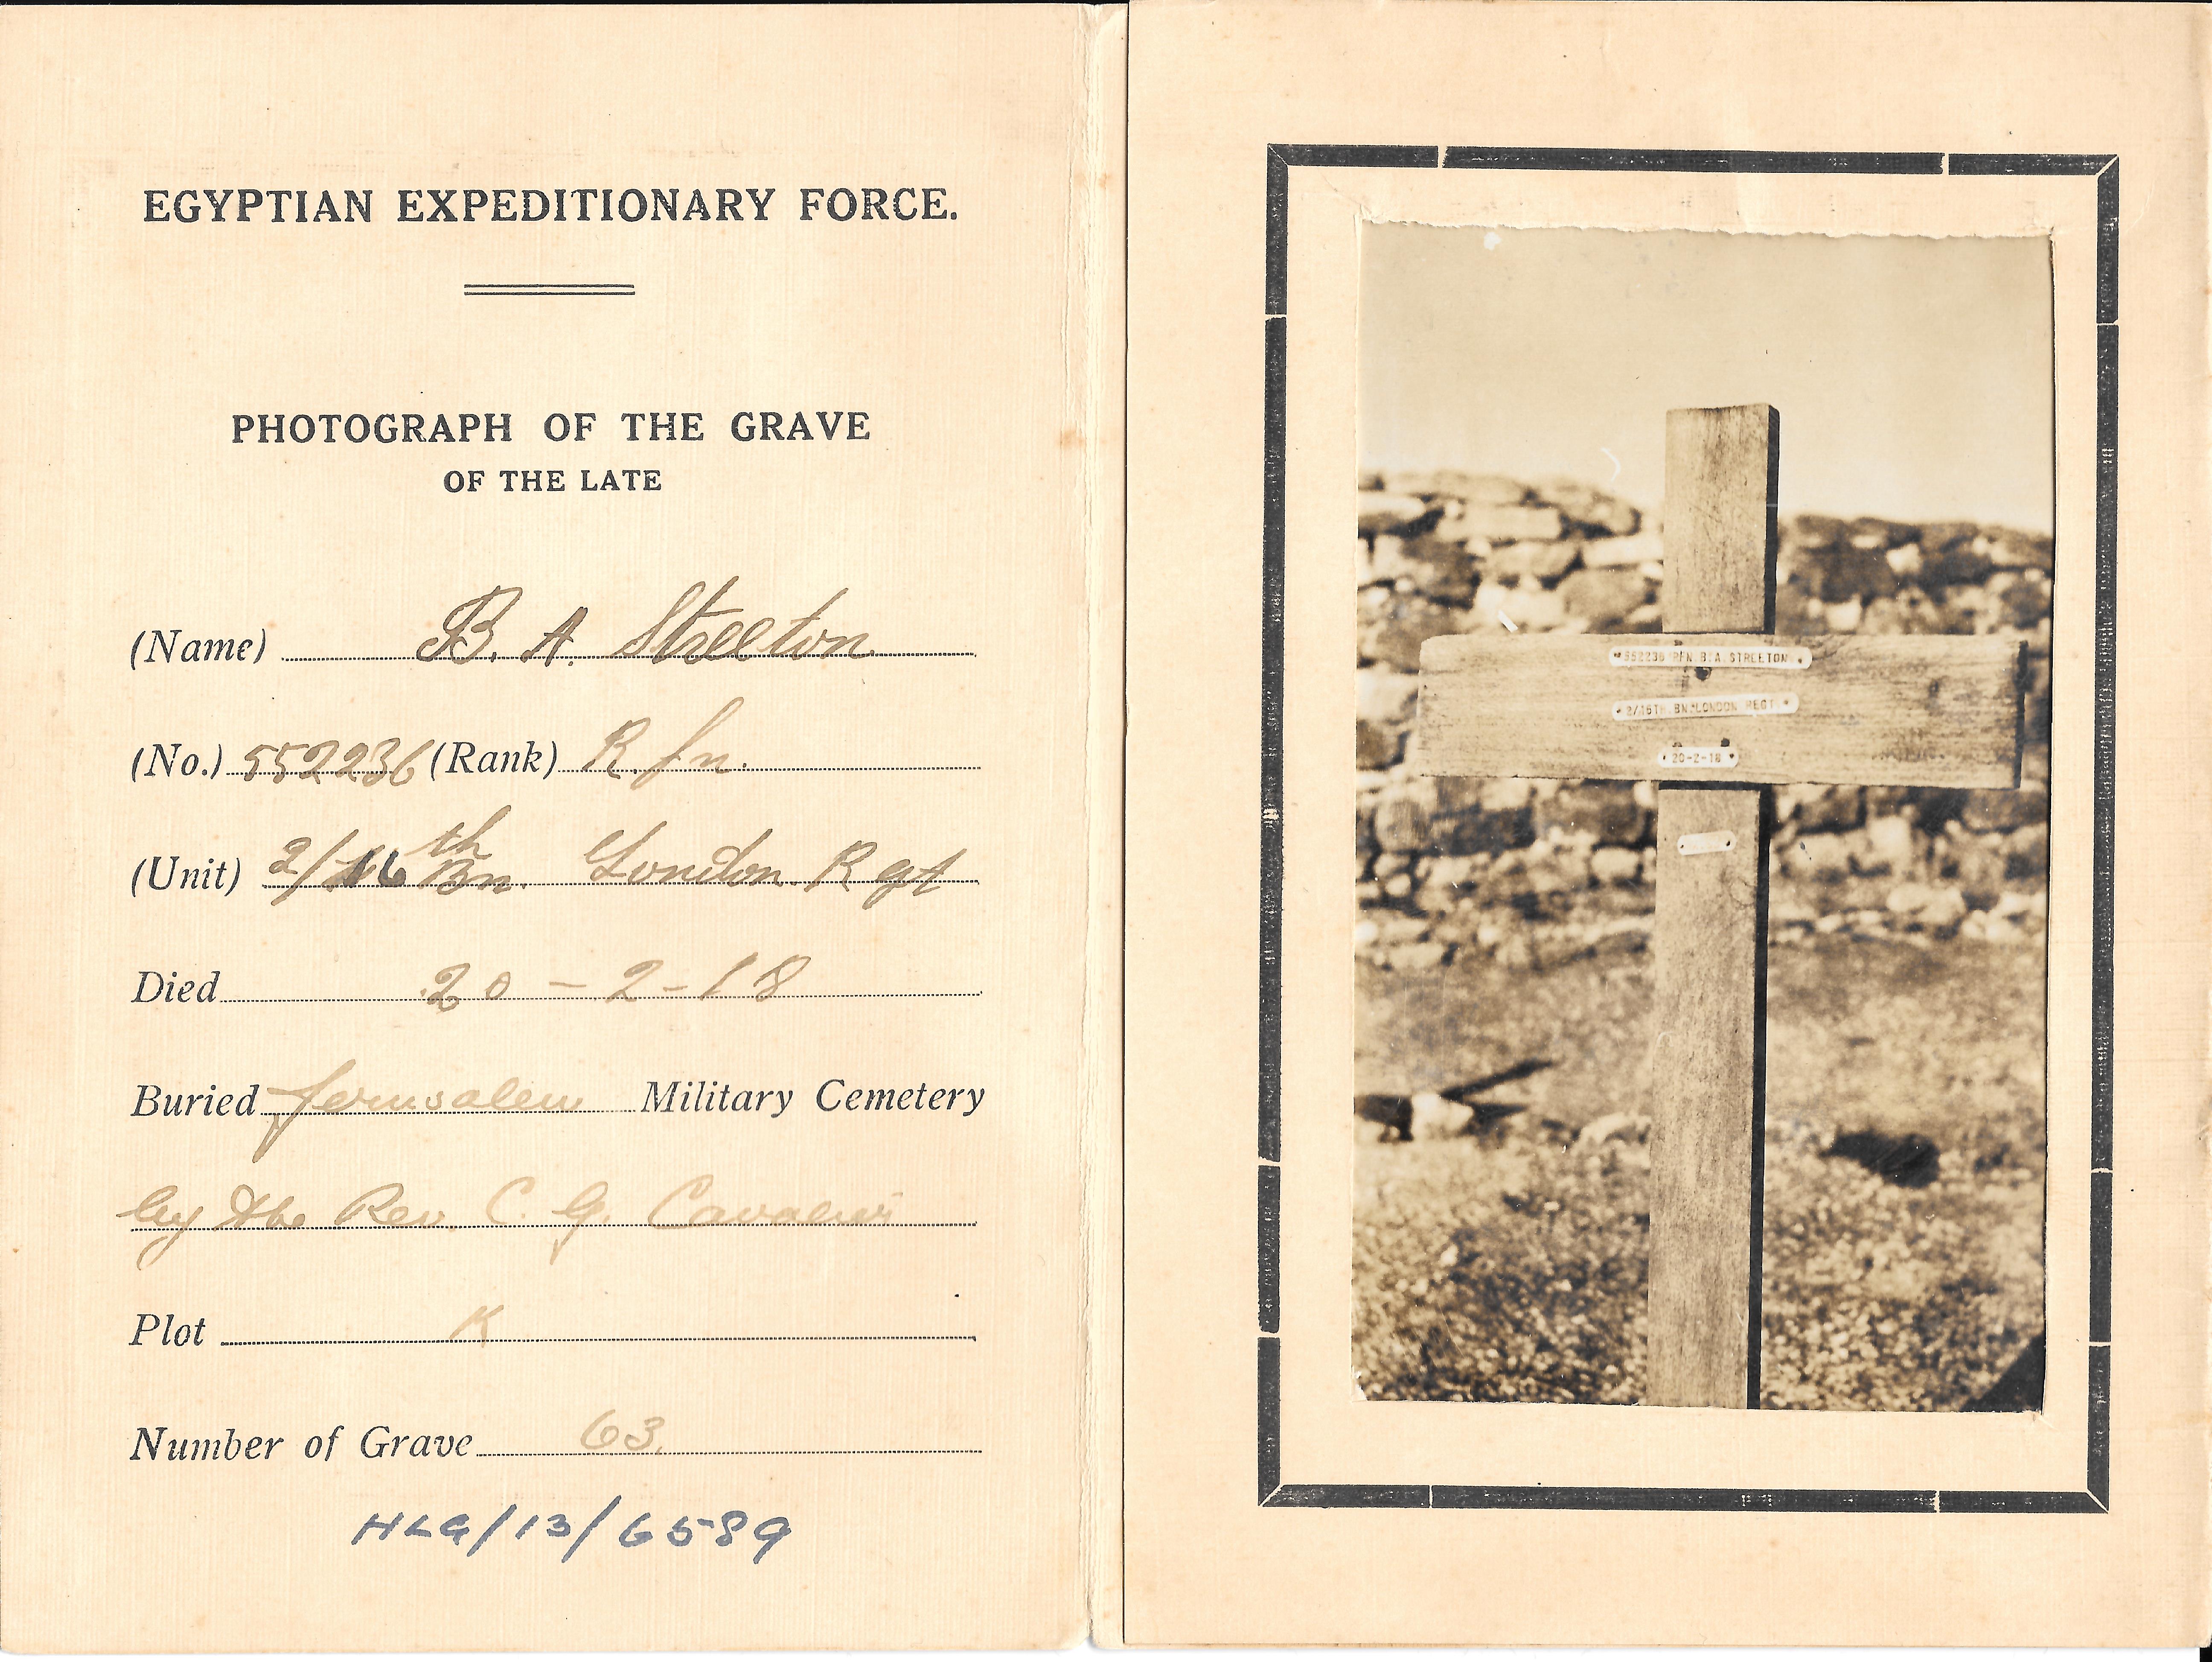 EGYPTIAN EXPEDITIONARY FORCE.
PHOTOGRAPH OF THE GRAVE
OF THE LATE
(Name) B. A. Streeton
(No.) 552236 (Rank) Rfn.
(Unit) 2/16th Bn. London Rgt
Died 20-2-18
Buried Jerusalem Military Cemetery
by the Rev. C. G.
Plot K
Number of Grave 63.
HLG/13/6589
552236 RFN B.A. STREETON
2/16TH BN. LONDON REGT
20-2-18